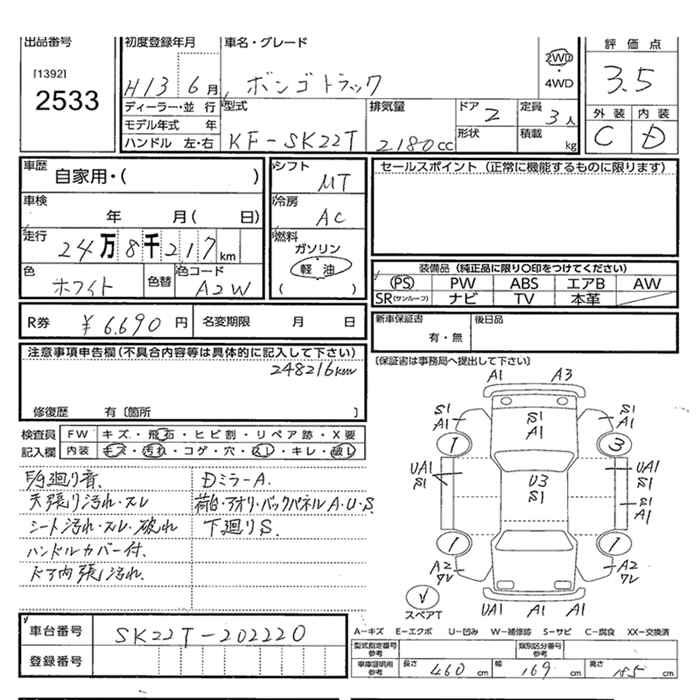 出品番号
[1392]
2533
初度登録年月
H13 6月
車名・グレード
ボンゴトラック
2WD
・
4WD
評価点
3.5
外装 内装
C D
ディーラー・並行
モデル年式 年
ハンドル 左・右
型式
KF-SK22T
排気量
2180cc
ドア 2
形状
定員 3人
積載 kg
車歴 自家用・( )
車検 年 月( 日)
走行
24万8千217km
色
ホワイト
色替
色コード
A2W
シフト
MT
冷房
AC
燃料
ガソリン
軽油
( )
セールスポイント (正常に機能するものに限ります)
装備品 (純正品に限り〇印をつけてください)
PS PW ABS エアB AW
SR(サンルーフ) ナビ TV 本革
R券 ¥6.690円 名変期限 月 日
新車保証書
有・無
後日品
(保証書は事務局へ提出して下さい)
注意事項申告欄(不具合内容等は具体的に記入して下さい)
248216km
修復歴 有〔箇所 〕
検査員 FW キズ・飛石・ヒビ割・リペア跡・X要
記入欄 内装 キズ・汚れ・コゲ・穴・スレ・キレ・破レ
廻り音
天張り汚れ・スレ
シート汚れ・スレ・破れ
ハンドルカバー付.
ドア内張汚れ.
DミラーA.
荷台・アオリ・バックパネルA・U・S.
下廻りS.
A1 A3
S1 A1
S1
A1
S1
A1
1 3
UA1
S1
U3
S1
UA1
S1
S1
A1
1 1
A2
ワレ
A2
ワレ
スペアT
UA1 A1 A1
A-キズ E-エクボ U-凹み W-補修跡 S-サビ C-腐食 XX-交換済
車台番号 SK22T-202220
登録番号
型式指定番号
参考
類別区分番号
参考
車庫証明用
参考
長さ 460cm 幅 169cm 高さ 195cm